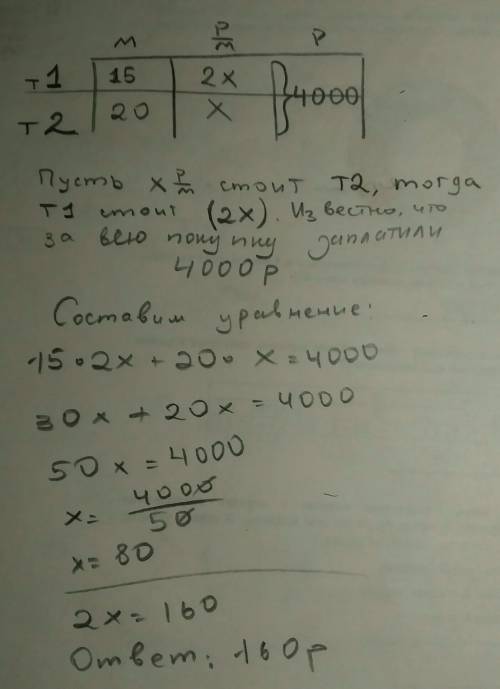 м р/м р
т1 15 2х } 4000
т2 20 х
Пусть х р/м стоит т2, тогда
т1 стоит (2х). Известно, что
за всю покупку заплатили
4000р
Составим уравнение:
15•2х + 20• х = 4000
30х + 20х = 4000
50х = 4000
х = 4000/50
х = 80
2х = 160
Ответ: 160р